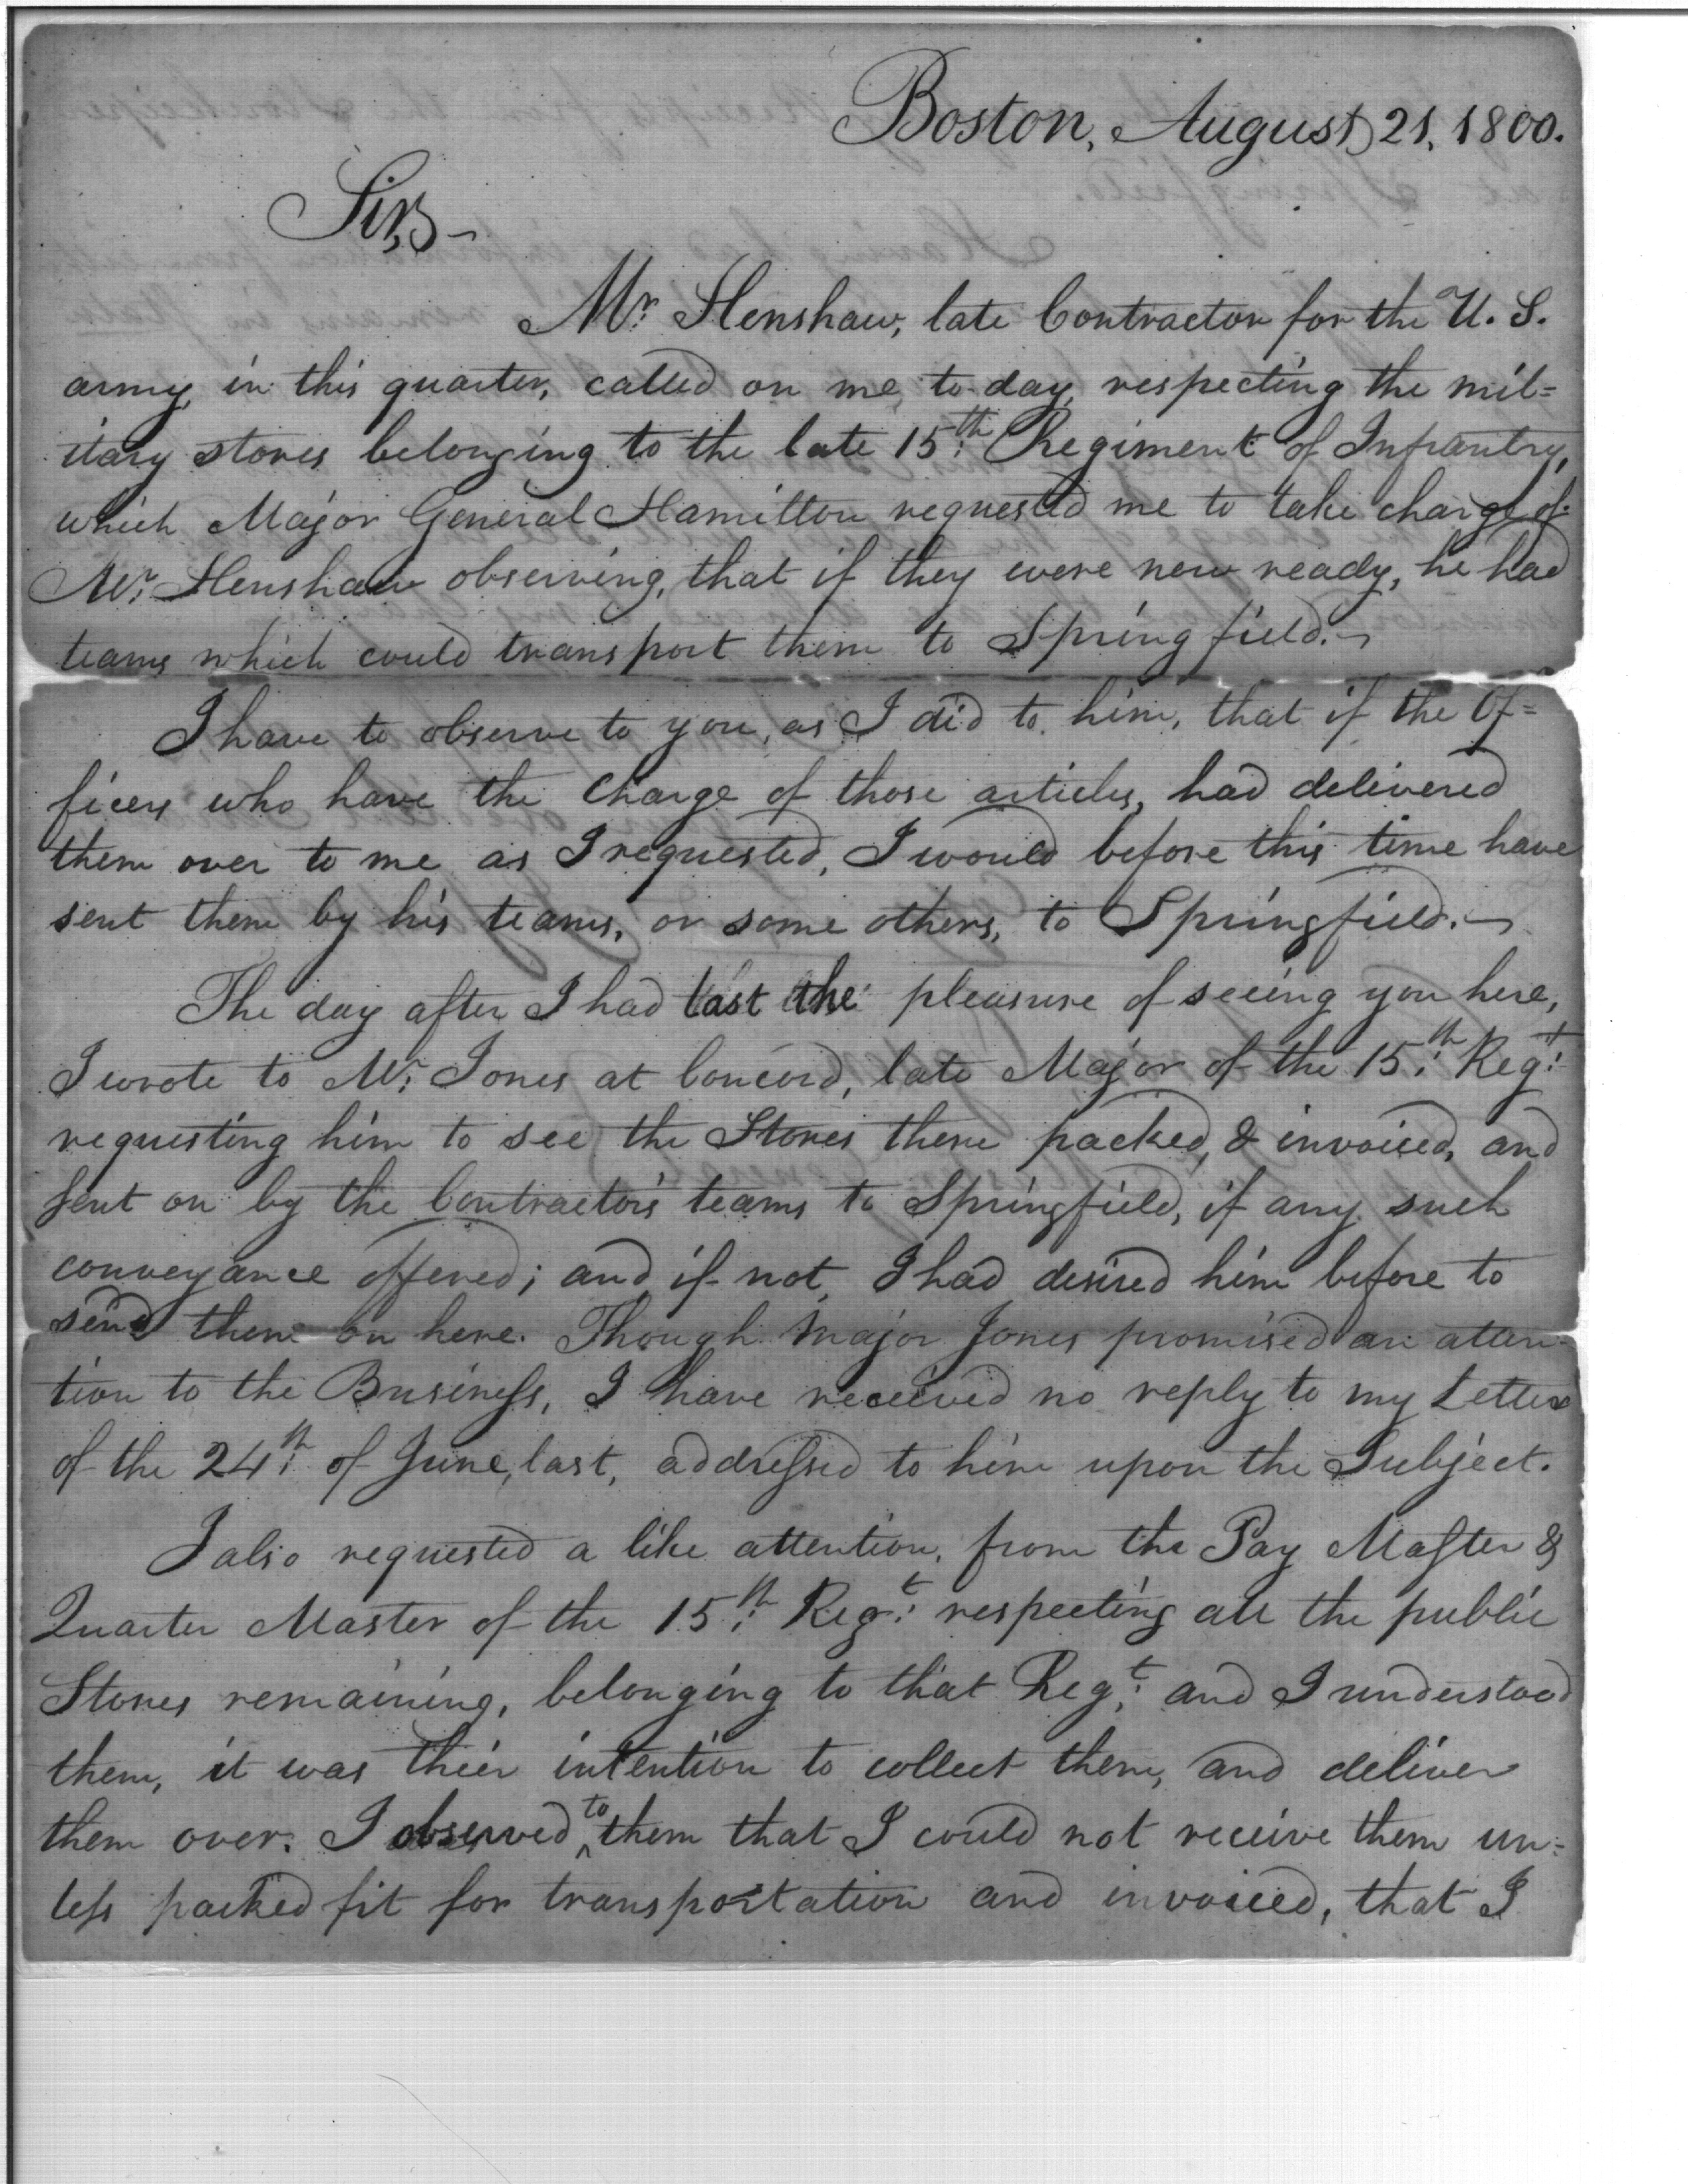 Boston, August 21, 1800.
Sir,
Mr. Henshaw, late Contractor for the U. S.
army, in this quarter, called on me, to-day, respecting the mil=
itary stores belonging to the late 15th. Regiment of Infrantry,
which Major General Hamilton requested me to take charge of.
Mr. Henshaw observing, that if they were new ready, he had
teams which could transport them to Springfield.
I have to observe to you, as I did to him, that if the Of=
ficers who have the Charge of those articles, had delivered
them over to me as I requested, I would before this time have
sent them by his teams, or some others, to Springfield.
The day after I had last the pleasure of seeing you here,
I wrote to Mr. Jones at Concord, late Major of the 15th. Regt.
requesting him to see the Stores there packed, & invoiced, and
sent on by the Contractor's teams to Springfield, if any such
conveyance offered; and if not, I had desired him before to
send them on here. Though Major Jones promised an atten-
tion to the Business, I have received no reply to my Letter
of the 24th. of June, last, addressed to him upon the Subject.
I also requested a like attention, from the Pay Master &
Quarter Master of the 15th. Regt. respecting all the public
Stores remaining, belonging to that Regt. and I understood
them, it was their intention to collect them, and deliver
them over. I observed to them that I could not receive them un=
less packed fit for transportation and invoiced, that I